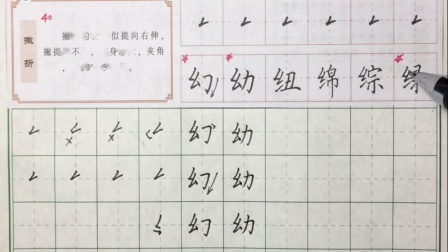 40
撇折
似提向右伸，
撇提 不 身 夹角
幻 幼 纽 绵 综 绿
幻 幼
幻 幼
幻 幼